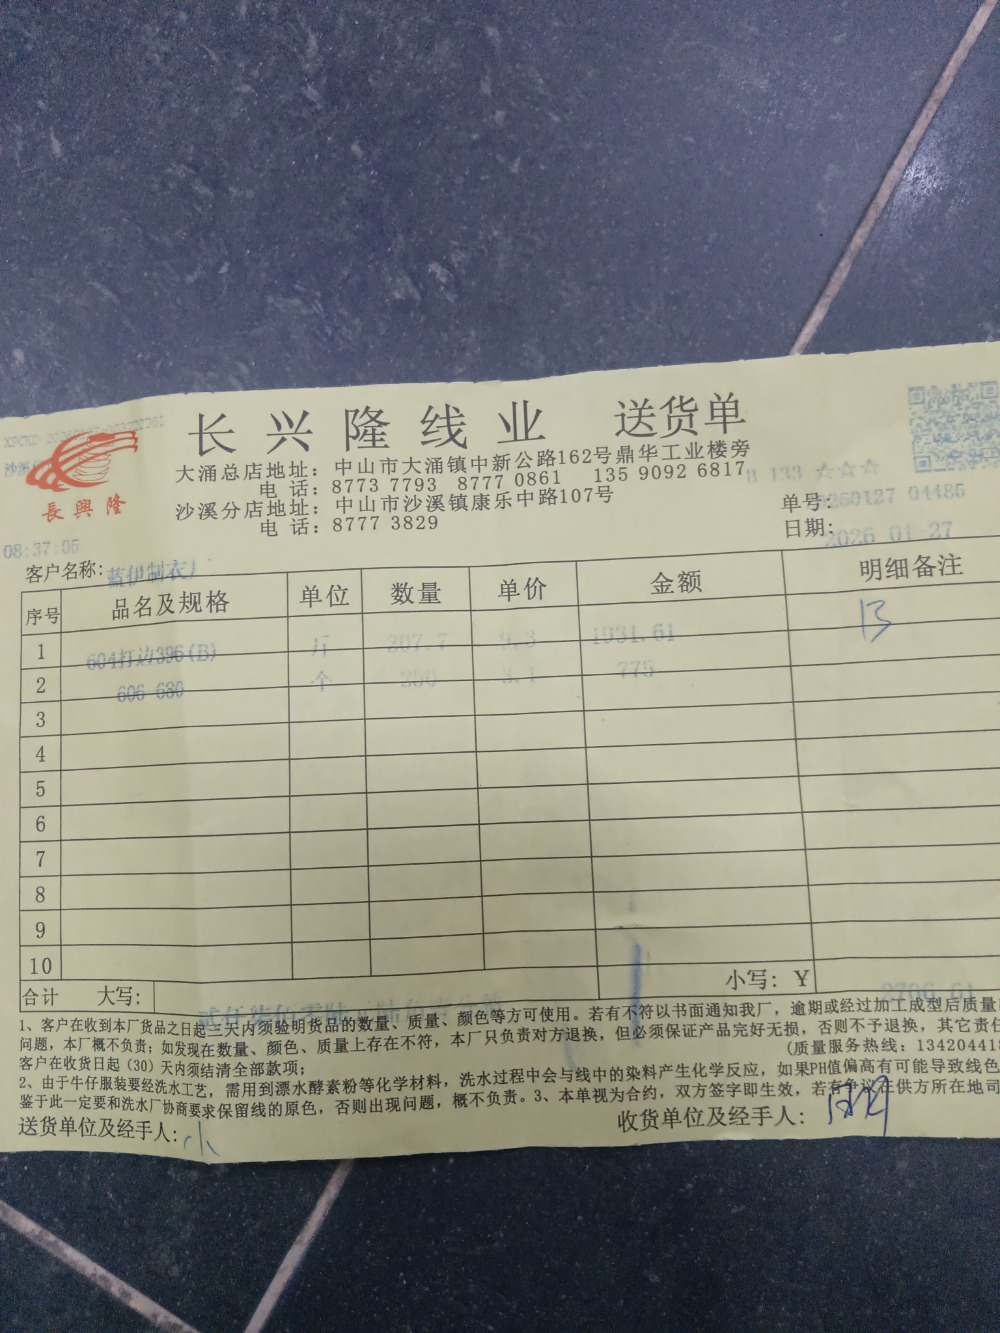 长兴隆线业 送货单
長興隆
大涌总店地址：中山市大涌镇中新公路162号鼎华工业楼旁
电 话：8773 7793 8777 0861 135 9092 6817
沙溪分店地址：中山市沙溪镇康乐中路107号
电 话：8777 3829
B 133 ☆☆☆
单号：20260127 04485
日期：2026 01 27
08:37:05
客户名称：蓝伊制衣厂
序号 品名及规格 单位 数量 单价 金额 明细备注
1 604打边396(B) 斤 207.7 9.3 1931.61 13
2 606 680 个 250 3.1 775
3
4
5
6
7
8
9
10
合计 大写： 小写：￥ 2706.61
1、客户在收到本厂货品之日起三天内须验明货品的数量、质量、颜色等方可使用。若有不符以书面通知我厂，逾期或经过加工成型后质量
问题，本厂概不负责；如发现在数量、颜色、质量上存在不符，本厂只负责对方退换，但必须保证产品完好无损，否则不予退换，其它责任
客户在收货日起（30）天内须结清全部款项； (质量服务热线：134204418
2、由于牛仔服装要经洗水工艺，需用到漂水酵素粉等化学材料，洗水过程中会与线中的染料产生化学反应，如果PH值偏高有可能导致线色
鉴于此一定要和洗水厂协商要求保留线的原色，否则出现问题，概不负责。3、本单视为合约，双方签字即生效，若有争议 供方所在地司
送货单位及经手人：小 收货单位及经手人：